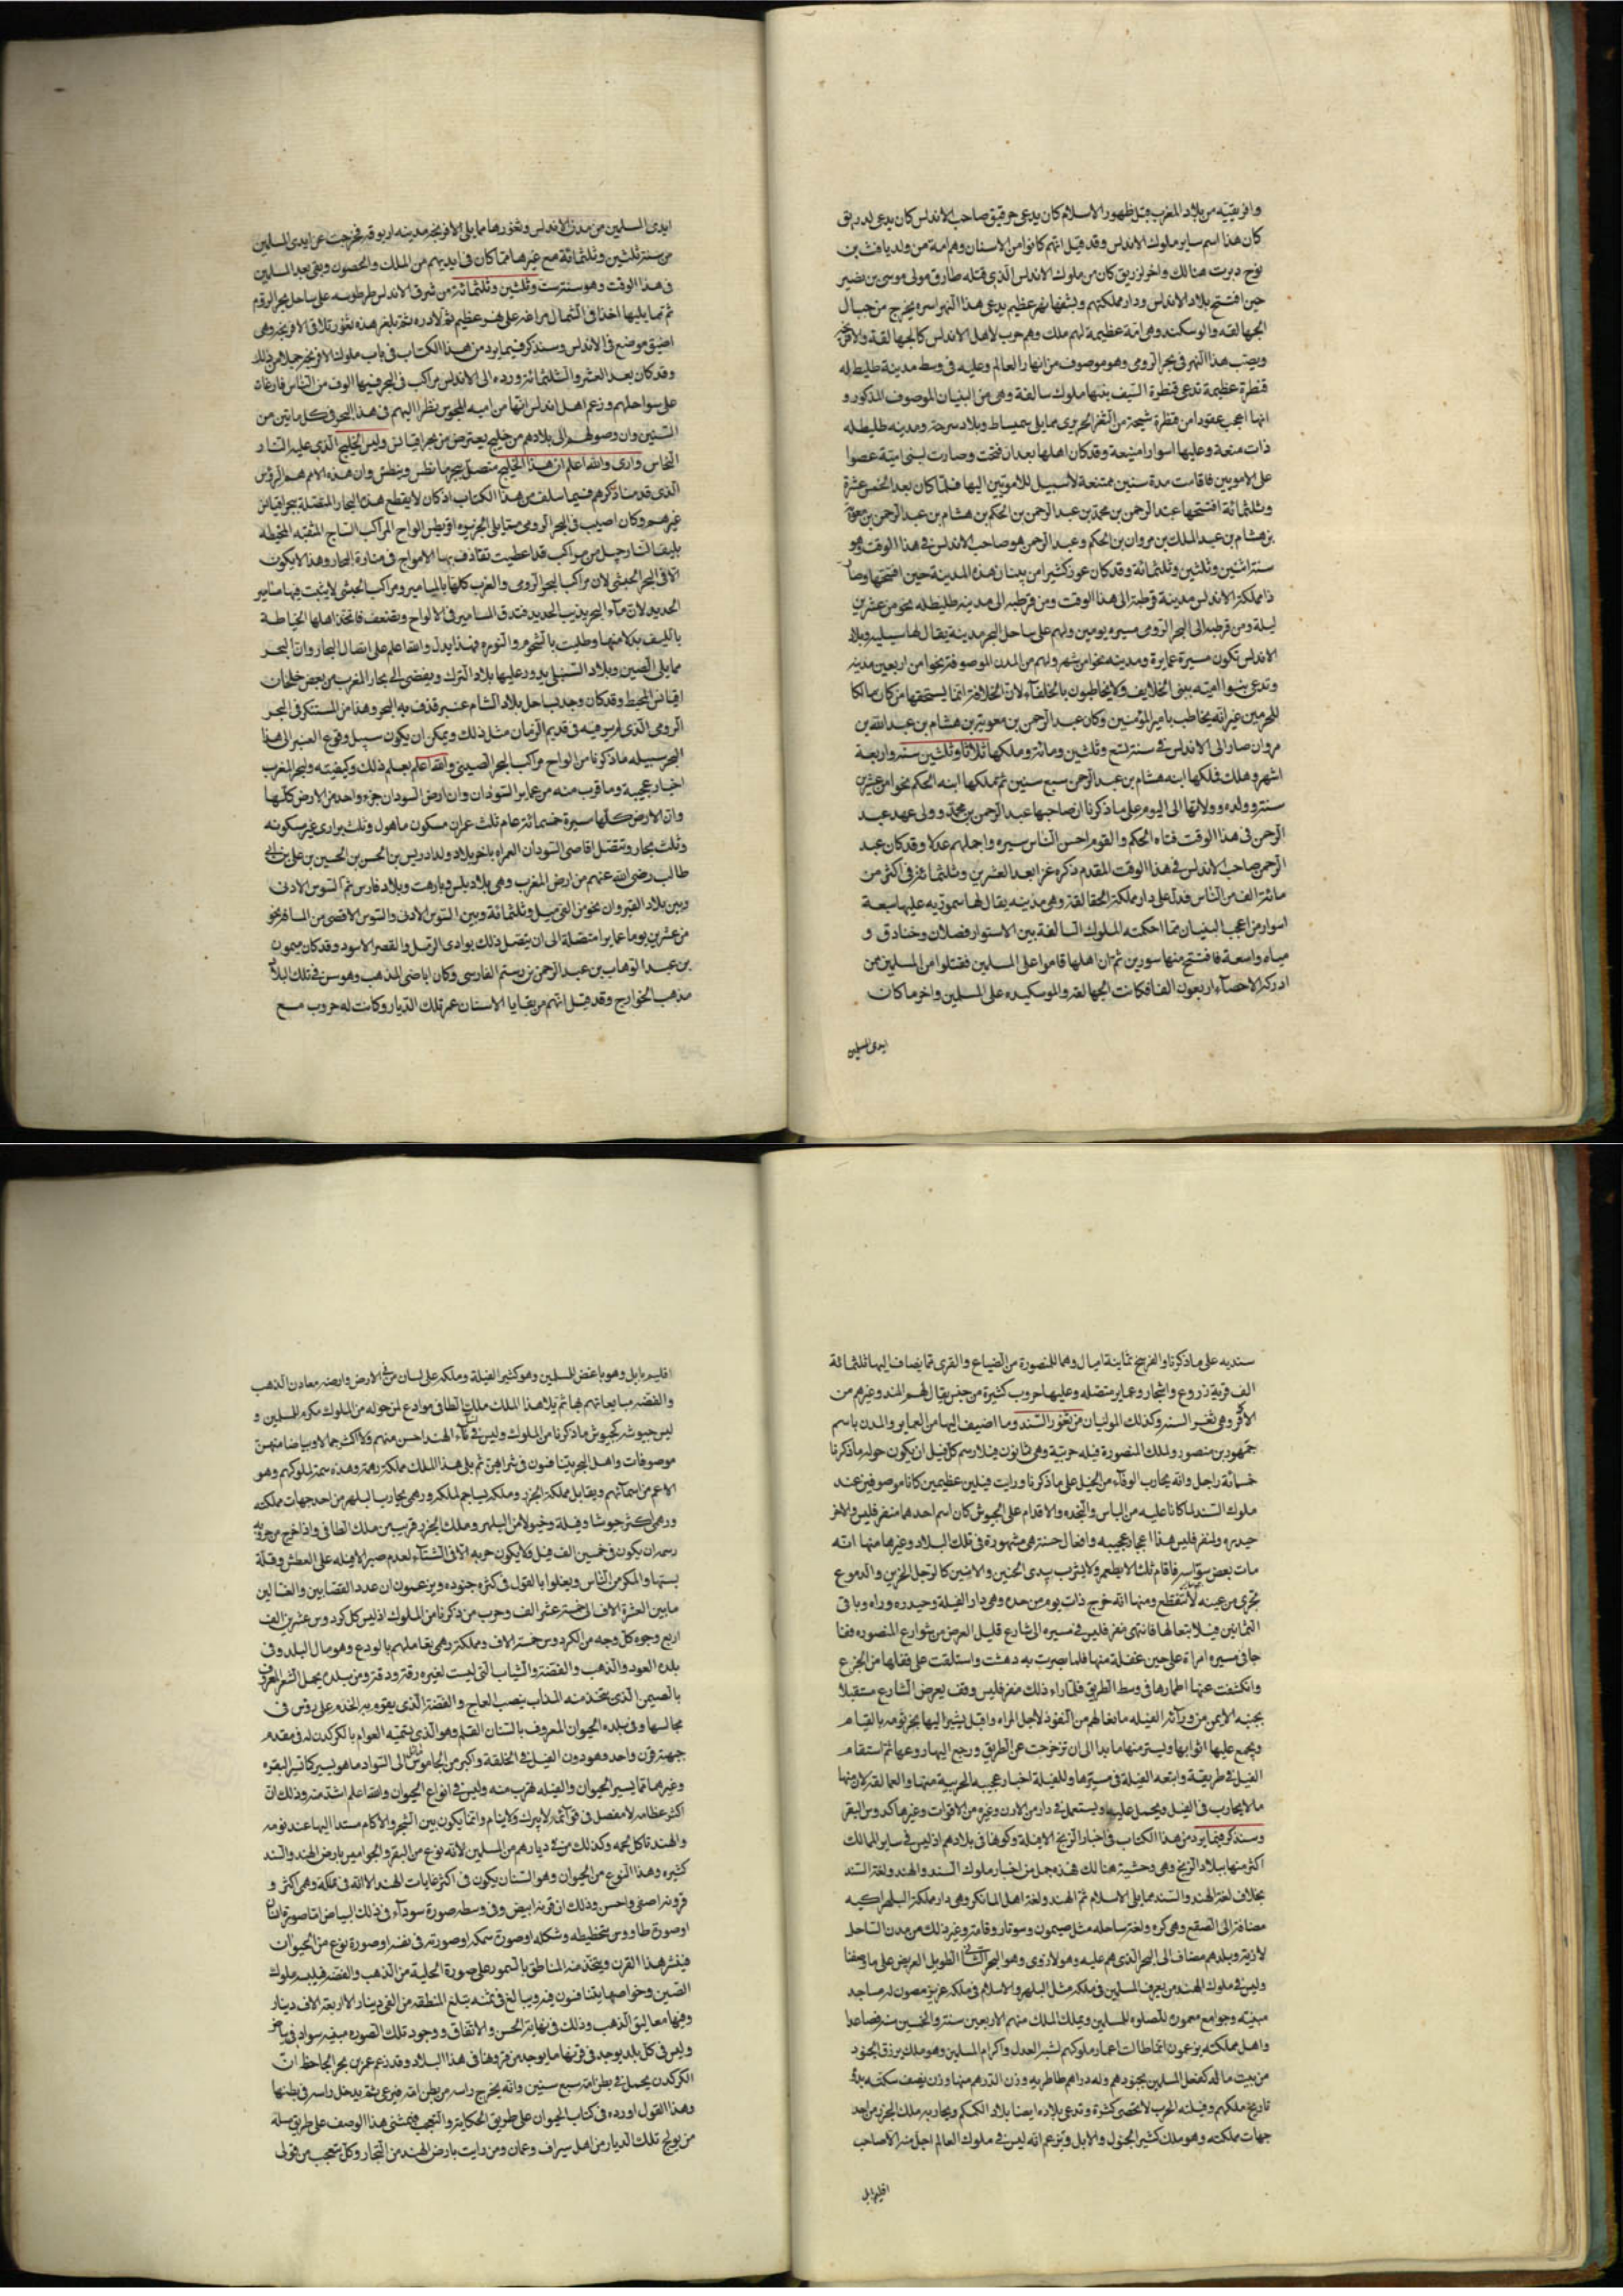 وافريقيه من بلاد المغرب قبل ظهور الاسلام كان يدعى جرقيق صاحب الاندلس كان يدعى لدريق
كان هذا اسم ساير ملوك الاندلس وقد قيل انهم كانوا من الاسنان وهم امة من ولد يافث بن
نوح دبرت هنالك واخر لزريق كان من ملوك الاندلس الذي قتله طارق مولى موسى بن نصير
حين افتتح بلاد الاندلس ودار مملكتهم ويشقها نهر عظيم يدعى هذا النهر اسره يخرج من جبال
الجهالقه والوسكند وهى امة عظيمة لهم ملك وهم حرب لاهل الاندلس كالجهالقة والافرنجه
ويصب هذا النهر فى بحر الرومى وهو موصوف من انهار العالم وعليه فى وسط مدينة طليطله
قنطرة عظيمة تدعى قنطرة السيف بنتها ملوك سالفة وهى من البنيان الموصوف المذكور و
انها اعجب عقودا من قنطرة شيحة من الثغر الجزرى مما يلى سميساط وبلاد سرجة ومدينه طليطله
ذات منعة وعليها اسوار منيعة وقد كان اهلها بعد ان فتحت وصارت لبنى امية عصوا
على الامويين فاقامت مدة سنين ممتنعة لا سبيل للامويين اليها فلما كان بعد الخمس عشرة
وثلثمائة افتتحها عبد الرحمن بن محمد بن عبد الرحمن بن الحكم بن هشام بن عبد الرحمن بن معويه
بن هشام بن عبد الملك بن مروان بن الحكم وعبد الرحمن هو صاحب الاندلس فى هذا الوقت وهو
سنة اثنين وثلثين وثلثمائة وقد كان عور كثيرا من بنيان هذه المدينة حين افتتحها وصار
دار مملكة الاندلس مدينة قرطبة الى هذا الوقت ومن قرطبه الى مدينه طليطله نحو من عشرين
ليلة ومن قرطبه الى البحر الرومى مسيره يومين ولهم على ساحل البحر مدينة يقال لها سبيليه وبلاد
الاندلس تكون مسيرة عمايرة ومدينه نحوا من شهر ولهم من المدن الموصوفة نحوا من اربعين مدينه
وتدعى بنوا اميه ببنى الخلايف ولا يخاطبون بالخلفآء لان الخلافة انما يستحقها من كان مالكا
للحرمين غير انه يخاطب بامير المؤمنين وكان عبد الرحمن بن معوية بن هشام بن عبد الله بن
مروان صار الى الاندلس فى سنة تسع وثلثين ومائة وملكها ثلاثا وثلثين سنه واربعة
اشهر وهلك فملكها ابنه هشام بن عبد الرحمن سبع سنين ثم ملكها ابنه الحكم نحوا من عشرين
سنة وولده وولاتها الى اليوم على ما ذكرنا ان صاحبها عبد الرحمن بن محمد وولى عهد عبد
الرحمن فى هذا الوقت فتاه الحكم والقوم احسن الناس سيره واجملهم عدلا وقد كان عبد
الرحمن صاحب الاندلس فى هذا الوقت المقدم ذكره غزا بعد العشرين وثلثمائة فى اكثر من
مائة الف من الناس فدل على دار مملكة الحقالقه وهى مدينه يقال لها سموتيه عليها سبعة
اسوار من اعجب البنيان مما احكمته الملوك السالفة بين الاسوار فصلان وخنادق و
مياه واسعة فافتتح منها سورين ثم ان اهلها قاموا على المسلمين فقتلوا من المسلمين ممن
ادركه الاحصآء اربعون الفا فكانت الجهالقه والوسكيده على المسلمين واخر ما كان
ايدى المسلمين
ايدى المسلمين من مدن الاندلس وثغورها مما يلى الافرنجه مدينه اربوقه فخرجت عن ايدى المسلمين
من سنة ثلثين وثلثمائة مع غيرها مما كان فى ايديهم من الملك والحصون وبقى بعد المسلمين
فى هذا الوقت وهو سنة ست وثلثين وثلثمائة من شرق الاندلس طرطوسه على ساحل بحر الروم
ثم مما يليها اخذا فى الشمال مراغه على نهر عظيم ثم لارده ثم بلغ هذه ثغور تلاقى الافرنجه وهى
اضيق موضع فى الاندلس وسنذكر فيما يرد من هذا الكتاب فى باب ملوك الافرنجه جملا من ذلك
وقد كان بعد العشر والثلثمائة ورده الى الاندلس مراكب فى البحر فيها الوف من الناس فاغات
على سواحلهم وزعم اهل اندلس انها من اميه المجوس نظرا اليهم فى هذا البحر فى كل مايتين من
السنين وان وصولهم الى بلادهم من خليج يعترض من بحر اقيانس وليس الخليج الذى عليه المنار
النحاس وارى والله اعلم ان هذا الخليج متصل ببحر مانطس وبنطش وان هذه الامم هم الروس
الذى قدمنا ذكرهم فيما سلف من هذا الكتاب اذ كان لا يقطع هذه البحار المتصله ببحر اقيانس
غيرهم وكان اصيب فى البحر الرومى مما يلى الجزيره اقريطس الواح المراكب الساج المثقبه المخيطه
بليف النارجيل من مراكب قد اعطبت تقاذف بها الامواج فى منارة البحار وهذا لا يكون
الا فى البحر الحبشى لان مراكب البحر الرومى والعرب كلها بالمسامير ومراكب الحبشى لا يثبت فيها مسامير
الحديد لان مآء البحر يذيب الحديد فتدق المسامير فى الالواح وتضعف فاتخذ اهلها الخياطة
بالليف بدلا منها وطليت بالشحوم والنوره فهذا يدل والله اعلم على اتصال البحار وان البحر
مما يلى الصين وبلاد السنبلى يدور عليها بلاد الترك ويفضى الى بحار المغرب من بعض خلجان
اقيانس المحيط وقد كان وجد بساحل بلاد الشام عنبر قذف به البحر وهذا من المستنكر فى البحر
الرومى الذى لم يرسو فيه فى قديم الزمان مثل ذلك ويمكن ان يكون سبيل وقوع العنبر الى هذا
البحر سبيله ما ذكرنا من الواح مراكب البحر الصينى والله اعلم بعلم ذلك وكيفيته ولبحر المغرب
اخبار عجيبة وما قرب منه من عماير السودان وان ارض السودان جزء واحد من الارض كلها
وان الارض كلها سيرة خمسمائة عام ثلث عمران مسكون ماهول وثلث برارى غير مسكونه
وثلث بحار وتتصل اقاصى السودان العراه باخر بلاد ولد ادريس بن الحسن بن الحسين بن على بن ابى
طالب رضى الله عنهم من ارض المغرب وهى بلاد تلمس وباهرت وبلاد فارس ثم السوس الادنى
وبين بلاد القيروان نحو من الفى ميل وثلثمائة وبين السوس الادنى والسوس الاقصى من المسافه نحو
من عشرين يوما عماير متصلة الى ان يتصل ذلك بوادى الرمل والقصر الاسود وقد كان ميمون
بن عبد الوهاب بن عبد الرحمن بن رستم الفارسى وكان اباضى المذهب وهو سن فى تلك البلاد
مذهب الخوارج وقد قيل انهم من بقايا الاسنان عمر تلك الديار وكانت له حروب مع
سنديه على ما ذكرنا والفرسخ ثمانية اميال وهما للمنصورة من الضياع والقرى مما يضاف اليها ثلثمائة
الف قرية زروع واشجار وعماير متصله وعليها حروب كثيرة من جنس يقال لهم المند وغيرهم من
وهى ثغر السند وكذلك المولتان من ثغور السند وما اضيف اليها من العماير والمدن باسم
جمهور بن منصور ولملك المنصورة فيله حربية وهى ثمانون فيلا رسم كل فيل ان يكون حوله ما ذكرنا
خمسمائة راجل وانه يحارب الوفآء من الخيل على ما ذكرنا ورايت فيلين عظيمين كانا موصوفين عند
ملوك السند لما كانا عليه من الباس والنجده والاقدام على الجيوش كان اسم احدهما منفرفليس والاخر
حيدره ولمنفرفليس هذا اخبار عجيبه وافعال حسنة هى مشهودة فى تلك البلاد وغيرها منها انه
مات بعض سواسه فاقام ثلثا لا يطعم ولا يشرب يبدى الحنين والانين كالرجل الحزين والدموع
تجرى من عينه لا تنقطع ومنها انه خرج ذات يوم من حده وهى دار الفيلة وحيدره وراه وباقى
الثمانين فيلا تبعا لها فانتهى منفرفليس فى مسيره الى شارع قليل العرض من شوارع المنصوره ففا
جا فى مسيره امراة على حين غفلة منها فلما بصرت به دهشت واستلقت على قفاها من الجزع
وانكشفت عنها اطمارها فى وسط الطريق فلما راء ذلك منفرفليس وقف بعرض الشارع مستقبلا
بجنبه الايمن من ورآئه الفيله مانعا لهم من النفوذ لاجل المراه واقبل يشير اليها بخرطومه بالقيام
ويجمع عليها اثوابها ويستر منها ما بدا الى ان تزحزحت عن الطريق ورجع اليها روعها ثم استقام
الفيل فى طريقه وابتعه الفيلة فى مسيرها وللفيلة اخبار عجيبه الحربية منها والعمالقه لان منها
ما لا يحارب فى الفيل ويحمل عليه ويستعمل فى دار من الارز وغيره من الاقوات وغيرها كدوس البقر
وسنذكر فيما يرد من هذا الكتاب فى اخبار الزنج الافيلة وكونها فى بلادهم اذ ليس فى ساير الممالك
اكثر منها ببلاد الزنج وهى وحشية هنالك فهذه جمل من اخبار ملوك السند والهند ولغة السند
بخلاف لغة الهند والسند مما يلى الاسلام ثم الهند ولغة اهل المانكر وهى دار مملكة البلهرا كيريه
مضافة الى الصقع وهى كره ولغة ساحله مثل صيمون وسوتار وقامة وغير ذلك من مدن الساحل
لاريه وبلدهم مضاف الى البحر الذى هم عليه وهو لاروى وهو البحر الطويل العريض على ما وصفنا
وليس فى ملوك الهند من يعرف المسلمين فى ملكه مثل البلهرا والاسلام فى ملكه عزيز مصون له مساجد
مبنية وجوامع معموره للصلوه للمسلمين ويملك الملك منهم الاربعين سنة والخمسين سنه فصاعدا
واهل مملكته يزعمون انما طالت اعمار ملوكهم لنشر العدل واكرام المسلمين وهو ملك يرزق الجنود
من بيت ماله كفعل المسلمين بجنودهم وله دراهم طاطريه وزن الدرهم منها وزن نصف سكته بدء
تاريخ ملكهم وفيلته الحرب لا تحصى كثرة وتدعى بلاده ايضا بلاد الكمكم ويحاربه ملك الجزر من احد
جهات مملكته وهو ملك كثير الخيول والابل ويزعم انه ليس فى ملوك العالم اجل منه الا صاحب
اقليم بابل
اقليم بابل وهو باغض للمسلمين وهو كثير الفيلة وملكه على لسان من الارض وارضه معادن الذهب
والفضة مبايعاتهم بها ثم يلا هذا الملك ملك الطافى موادع لمن حوله من الملوك مكرم للمسلمين و
ليس جيوشه كجيوش ما ذكرنا من الملوك وليس فى نسآء الهند احسن منهم ولا اكثر جمالا وبياضا منهن
موصوفات واهل البحر يتنافسون فى شراهن ثم يلى هذا الملك مملكة رهمة وهذه سمة لملوكهم وهو
الاعم من اسمآئهم ويقابل مملكة الجزر وملكه تياخم الملكه ورهمى يحارب البلهرا من احد جهات مملكته
ورهمى اكثر جيوشا وفيلة وخيولا من البلهرا وملك الجزر قريب من ملك الطافى واذا خرج من حروبه
رسمه ان يكون فى خمسين الف فيل فلا يكون حربه الا فى الشتآء لعدم صبر الافيله على العطش وقلة
والمكثر من الناس ويغلوا بالقول فى كثرة جنوده ويزعمون ان عدد القصابين والغسالين
ما بين العشرة الاف الى خمسة عشر الف وحرب من ذكرنا من الملوك اذ ليس كل كردوس عشرين الف
اربع وجوه كل وجه من الكردوس خمسة الاف ومملكة رهمى يعاملهم بالودع وهو مال البلد وفى
بلده العود والذهب والفضة والثياب التى ليست لغيره رقة ودقة ومن بلده يحمل الشعر المعروف
بالصيمر الذى يتخذ منه المذاب بنصب العاج والفضة الذى يقوم به الخدم على روس فى
مجالسها وفى بلده الحيوان المعروف بالسنان المعلم وهو الذى يسميه العوام بالكركدن له فى مقدم
جهته قرن واحد وهو دون الفيل فى الخلقة واكبر من الجاموس مايل الى السواد ما هو يسير كاتير البقره
وغيرها مما يسير الحيوان والفيله تهرب منه وليس فى انواع الحيوان والله اعلم اشد منه وذلك ان
اكثر عظامه لا مفصل فى قوآئمه لا يبرك ولا ينام وانما يكون بين الشجر والاكام مستندا اليها عند نومه
والهند تاكل لحمه وكذلك من فى ديارهم من المسلمين لانه نوع من البقر والجواميس بارض الهند والسند
كثيره وهذا النوع من الحيوان وهو السنان يكون فى اكثر غابات الهند الا انه فى مملكة رهمى اكثر و
قرونه اصفى واحسن وذلك ان قرنه ابيض وفى وسطه صورة سودآء فى ذلك البياض اما صورة انسان
او صورة طاووس بتخطيطه وشكله او صورة سمكه او صورته فى نفسه او صورة نوع من الحيوان
فينشر هذا القرن ويتخذ منه المناطق بالسيور على صورة الحلية من الذهب والفضه فيلبسه ملوك
الصين وخواصها يتنافسون فيه ويبالغ فى ثمنه يبلغ المنطقه من الفى دينار الى اربعة الاف دينار
وفيها معاليق الذهب وذلك فى نهاية الحسن والاتقاف ووجود تلك الصوره مبنيه سواد فى بياض
وليس فى كل بلد يوجد فى قرنها ما يوجد من قرونها فى هذا البلاد وقد زعم عمر بن بحر الجاحظ ان
الكركدن يحمل فى بطن امه سبع سنين وانه يخرج راسه من بطن امه فيرعى ثم يدخل راسه فى بطنها
وهذا القول اورده فى كتاب الحيوان على طريق الحكاية والتعجب فبعثنى هذا الوصف على طريق مسلة
من يولج تلك الديار من اهل سيراف وعمان ومن رايت بارض الهند من التجار وكل يتعجب من قولى